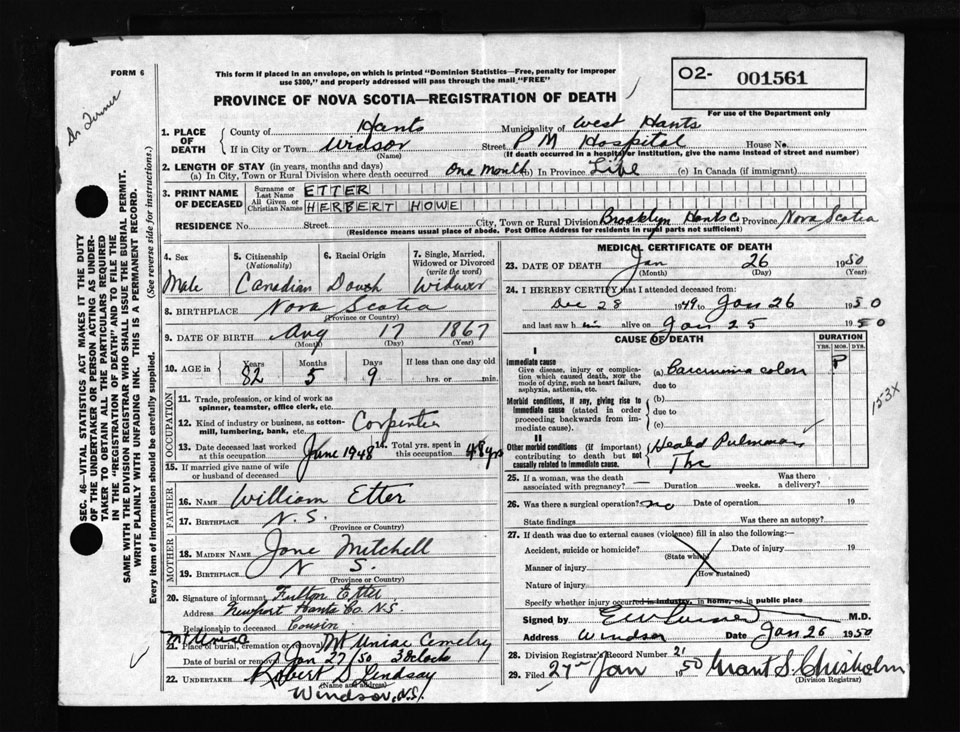 FORM 6
This form if placed in an envelope, on which is printed "Dominion Statistics—Free, penalty for improper
use $300," and properly addressed will pass through the mail "FREE"
PROVINCE OF NOVA SCOTIA—REGISTRATION OF DEATH
02- 001561
For use of the Department only
Dr Turner
SEC. 46—VITAL STATISTICS ACT MAKES IT THE DUTY
OF THE UNDERTAKER OR PERSON ACTING AS UNDER-
TAKER TO OBTAIN ALL THE PARTICULARS REQUIRED
IN THE "REGISTRATION OF DEATH" AND TO FILE THE
SAME WITH THE DIVISION REGISTRAR WHO SHALL ISSUE THE BURIAL PERMIT.
WRITE PLAINLY WITH UNFADING INK. THIS IS A PERMANENT RECORD.
Every item of information should be carefully supplied. (See reverse side for instructions.)
1. PLACE OF DEATH
County of Hants Municipality of West Hants
If in City or Town Windsor Street P M Hospital House No.
(Name) (If death occurred in a hospital or institution, give the name instead of street and number)
2. LENGTH OF STAY (in years, months and days)
(a) In City, Town or Rural Division where death occurred One Month (b) In Province Life (c) In Canada (if immigrant)
3. PRINT NAME OF DECEASED
Surname or Last Name ETTER
All Given or Christian Names HERBERT HOWE
RESIDENCE No. Street City, Town or Rural Division Brooklyn Hants Co Province Nova Scotia
(Residence means usual place of abode. Post Office Address for residents in rural parts not sufficient)
4. Sex Male
5. Citizenship (Nationality) Canadian
6. Racial Origin Douth
7. Single, Married, Widowed or Divorced (write the word) Widower
8. BIRTHPLACE Nova Scotia
(Province or Country)
9. DATE OF BIRTH Aug 17 1867
(Month) (Day) (Year)
10. AGE in Years Months Days If less than one day old
82 5 9 hrs. or min.
OCCUPATION
11. Trade, profession, or kind of work as
spinner, teamster, office clerk, etc.
12. Kind of industry or business, as cotton-
mill, lumbering, bank, etc. Carpenter
13. Date deceased last worked at this occupation June 1948
14. Total yrs. spent in this occupation 48 yrs
15. If married give name of wife
or husband of deceased
FATHER
16. NAME William Etter
17. BIRTHPLACE N.S.
(Province or Country)
MOTHER
18. MAIDEN NAME Jane Mitchell
19. BIRTHPLACE N S.
(Province or Country)
20. Signature of informant Fulton Etter
Address Newport Hants Co. N.S.
Relationship to deceased Cousin
Mt Uniac
21. Place of burial, cremation or removal Mt Uniac Cemetry
Date of burial or removal Jan 27/50 3 o'clock
22. UNDERTAKER Robert D Lindsay
(Name and address)
Windsor, N.S.
MEDICAL CERTIFICATE OF DEATH
23. DATE OF DEATH Jan 26 1950
(Month) (Day) (Year)
24. I HEREBY CERTIFY that I attended deceased from:
Dec 28 1949 to Jan 26 1950
and last saw him alive on Jan 25 1950
CAUSE OF DEATH DURATION
YRS. MOS. DYS.
I
Immediate cause
Give disease, injury or complica-
tion which caused death, not the
mode of dying, such as heart failure,
asphyxia, asthenia, etc.
(a) Carcinoma colon
due to
Morbid conditions, if any, giving rise to
immediate cause (stated in order
proceeding backwards from im-
mediate cause).
(b)
due to
(c)
II
Other morbid conditions (if important)
contributing to death but not
causally related to immediate cause.
Healed Pulmonary
Tbc
153X
25. If a woman, was the death Was there
associated with pregnancy? — Duration weeks. a delivery?
26. Was there a surgical operation? no Date of operation 19
State findings Was there an autopsy?
27. If death was due to external causes (violence) fill in also the following:—
Accident, suicide or homicide? Date of injury 19
(State which)
Manner of injury
(How sustained)
Nature of injury
Specify whether injury occurred in industry, in home, or in public place
Signed by M.D.
Address Windsor Date Jan 26 1950
28. Division Registrar's Record Number 21
29. Filed 27 Jan 1950 Grant S. Chisholm
(Division Registrar)